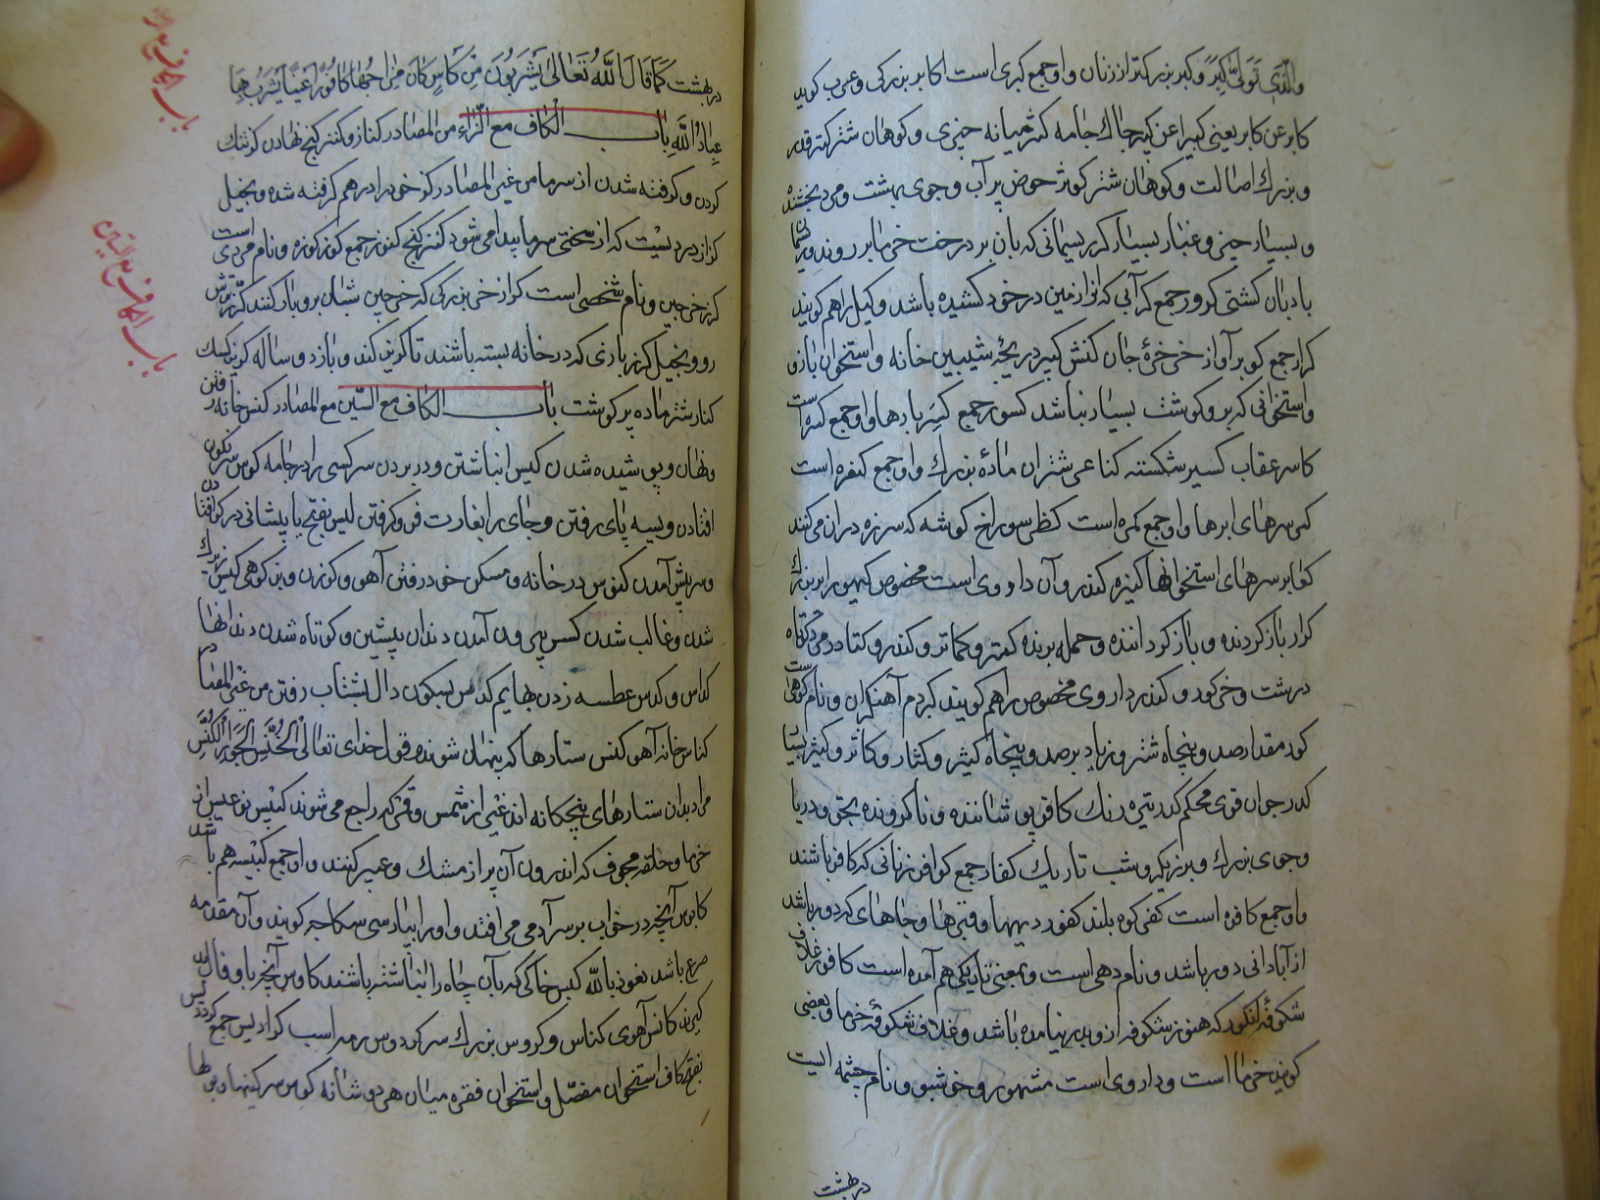 والذی تولی کبره وکبر بزرکتر از زنان واو جمع کبری است اکابر بزرکی وعرب کوید
کابر عن کابر یعنی کبیرا عن کبیر چاک جامه کثر میانه چیزی وکوهان شتر کتر قدر
وبزرک اصالت وکوهان شتر کوثر حوض پر آب وجوی بهشت ومرد بخشنده
وبسیار چیزی وغبار بسیار کر ریسمانی که بان بر درخت خرما بر روند
بادبان کشتی کرور جمع کر آبی که او از زمین در خود کشیده باشد وکیل را هم کویند
کرار جمع کویر آواز خرخرهٔ جان کنش کسر دریچهٔ شیبین خانه واستخوان بازو
واستخوانی که برو کوشت بسیار نباشد کسور جمع کسر بارها واو جمع کسره است
کاسر عقاب کسیر شکسته کناعر شتران مادهٔ بزرک واو جمع کنعره است
کمر سرهای ابرها واو جمع کمره است کظر سوراخ کوشه که سر زه در ان می کنند
کعابر سرهای استخوانها کزبره کندر وآن داروی است مخصوص کنهور ابر بزرک
کرار باز کردنده وباز کرداننده وحمله برنده کمتر وکماتر وکندر وکنادر مرد کوتاه
درشت وخر کور وکندر داروی مخصوص را هم کویند کیر دم آهنکران ونام کوهی است
کور مقدار صد وپنجاه شتر وزیاد بر صد وپنجاه کثیر وکثار وکاثر وکیثر بسیار
کدر جوان قوی محکم کدر تیره رنک کافر پوشاننده وناکرونده بحق ودریا
وجوی بزرک وبرزیکر وشب تاریک کفار جمع کوافر زنانی که کافر باشند
واو جمع کافره است کفر کوه بلند کفور دیهها وقبرها وجاهای که دور باشد
از آبادانی دور باشد ونام دهی است وبمعنی تاریکی هم آمده است کافور غلاف
شکوفهٔ انکور که هنوز شکوفه ازو بدر نیامده باشد وغلاف شکوفهٔ خرما وبعضی
کویند خرما است وداروی است مشهور وخوشبو ونام چشمه ایست
در بهشت
در بهشت کما قال الله تعالی یشربون من کأس کان مزاجها کافورا عینا یشرب بها
عباد الله باب الکاف مع الزاء من المصادر کناز وکنز کنج نهادن
کردن وکرفته شدن از سرما من غیر المصادر کز خود را درهم کرفته شده وبخیل
کزاز دردیست که از سختی سرما پیدا می شود کنز کنج کنوز جمع کوز کوزه ونام مردی است
کرز خرجین ونام شخصی است کراز خرجی بزرکی که خرجین شبان برو بار کنند
رو وبخیل کرز بازی که در خانه بسته باشند تا کریز کند وباز دو ساله کویند
کناز شتر ماده پر کوشت باب الکاف مع السین مع المصادر کنس خانه رفتن
ونهان وپوشیده شدن کبس انباشتن ودر بردن سر کسی را در جامه کوس سرنکون
افتادن وبسه پای رفتن وجای را بغارت فرو کرفتن
وسر پیش آمدن کنوس در خانه ومسکن خود رفتن آهو وکوزن وبز کوهی کیس زیرک
شدن وغالب شدن کسس بیرون آمدن دندان پیشین وکوتاه شدن دندانها
کداس وکدس عطسه زدن بهایم کدس بسکون دال بشتاب رفتن من غیر المصادر
کناس خانهٔ آهو کنس ستارها که پنهان شوند وقول خدای تعالی الخنس الجوار الکنس
مراد بدان ستارهای پنجکانه اند غیر از شمس وقمر که راجع می شوند کبیس نوعیست از
خرما وحلقهٔ مجوف که اندرون آن پر از مشک وعبیر کنند واو جمع کبیسه هم باشد
کابوس آنچه در خواب بر سر آدمی می افتد واو را بپارسی سکاچه کویند وآن مقدمه
صرع باشد نعوذ بالله کبس خاکی که بآن چاه را انباشته باشند کادس آنچه باو فال بد
کیرند کانس آهوی کناس وکروس بزرک سر کردوس رمهٔ اسب کرادیس جمع
بفتح کاف استخوان مفصل واستخوان فقره میان هر دو شانه کوس سرکینها وبولها
باب الکاف مع الزاء
باب الکاف مع السین